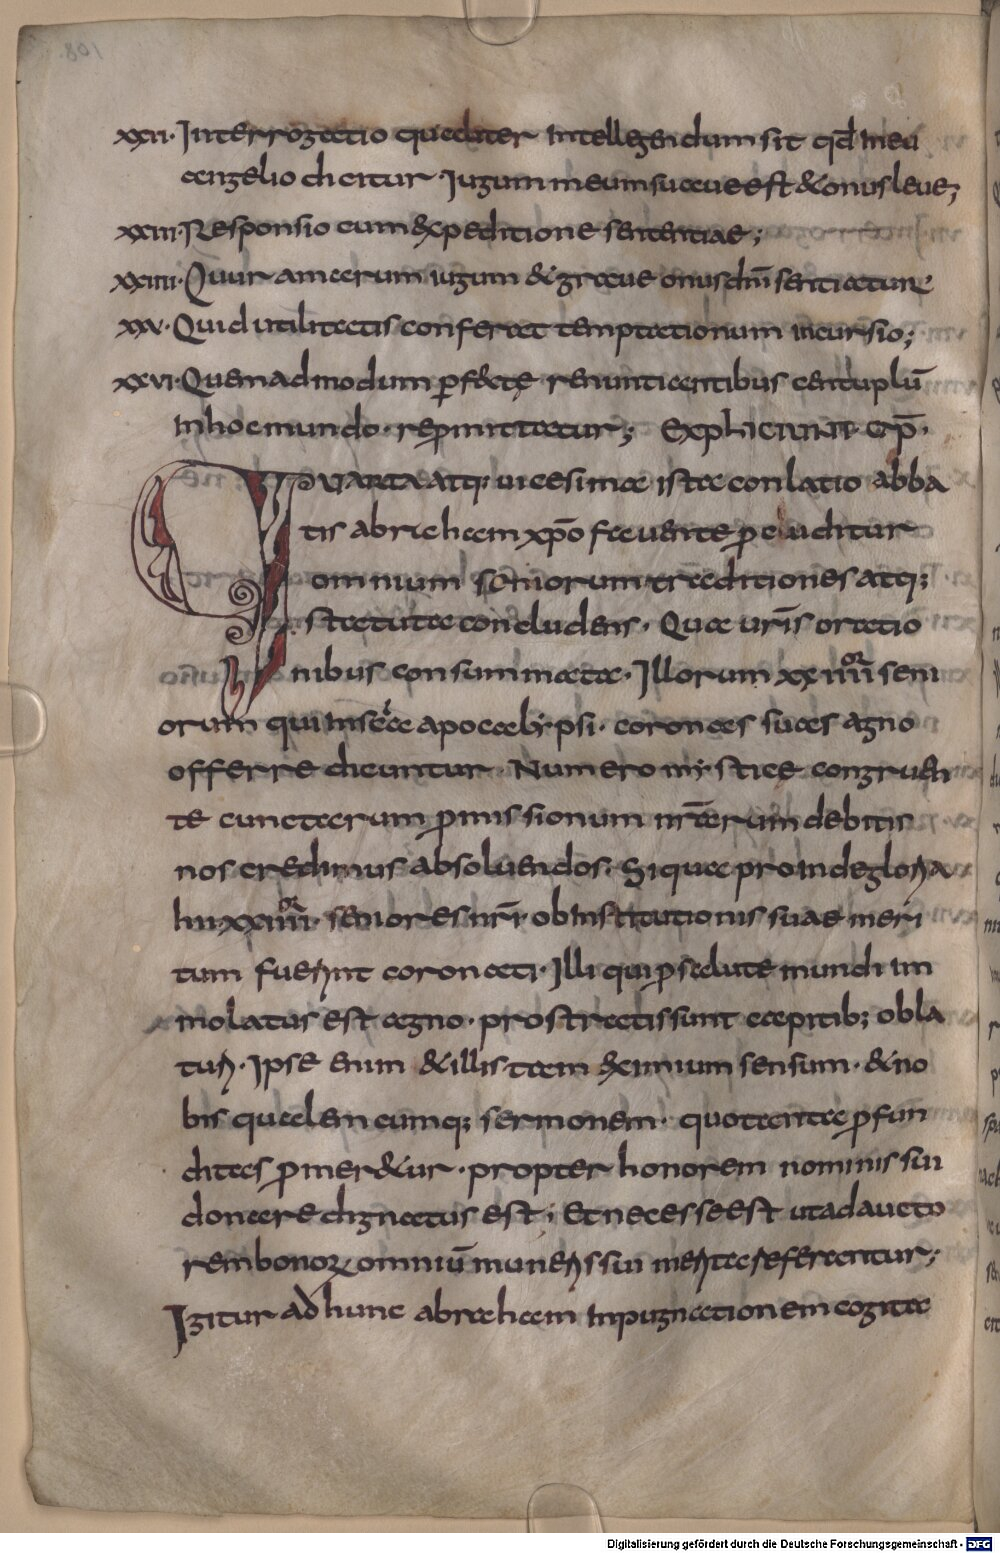 xxii· Interrogatio qualiter intellegendum sit qđ in eu
angelio dicitur· Iugum meum suaue est & onus leue;
xxiii· Responsio cum expeditione sententiae;
xxiiii· Quur amarum iugum & graue onus dn̄i sentiatur;
xxv· Quid utilitatis conferat temptationum incursio;
xxvi· Quemadmodum ꝑfecte renuntiantibus centuplū
in hoc mundo· rep̄mittatur; Expliciunt cap̄·
QUARTA atq; uicesima ista conlatio abba
tis abraham xp̄o fauente p̄cuditur
omnium seniorum traditiones atq;
statuta concludens· Quae ur̄is oratio
nibus consummata· Illorum xxiiii^or seni
orum qui in sacra apocalypsi· coronas suas agno
offerre dicuntur· Numero mystice congruen
te cunctarum p̄missionum nr̄arum debitis
nos credimus absoluendos· Si qua proinde gloria
hii xxiiii^or· seniores nr̄i· ob institutionis suae meri
tum fuerint coronati· Illi qui p̄ salute mundi im
molatus est agno· prostratis sunt capitib; obla
turi· Ipse enim & illis tam eximium sensum· & no
bis qualemcumq; sermonem· quo tanta p̄fun
ditas p̄meretur· propter honorem nominis sui
donare dignatus est; Et necesse est ut ad aucto
rem bonoꝝ omniū muneris sui merita referantur;
Igitur ad hunc abraham inpugnationem cogita
Digitalisierung gefördert durch die Deutsche Forschungsgemeinschaft - DFG